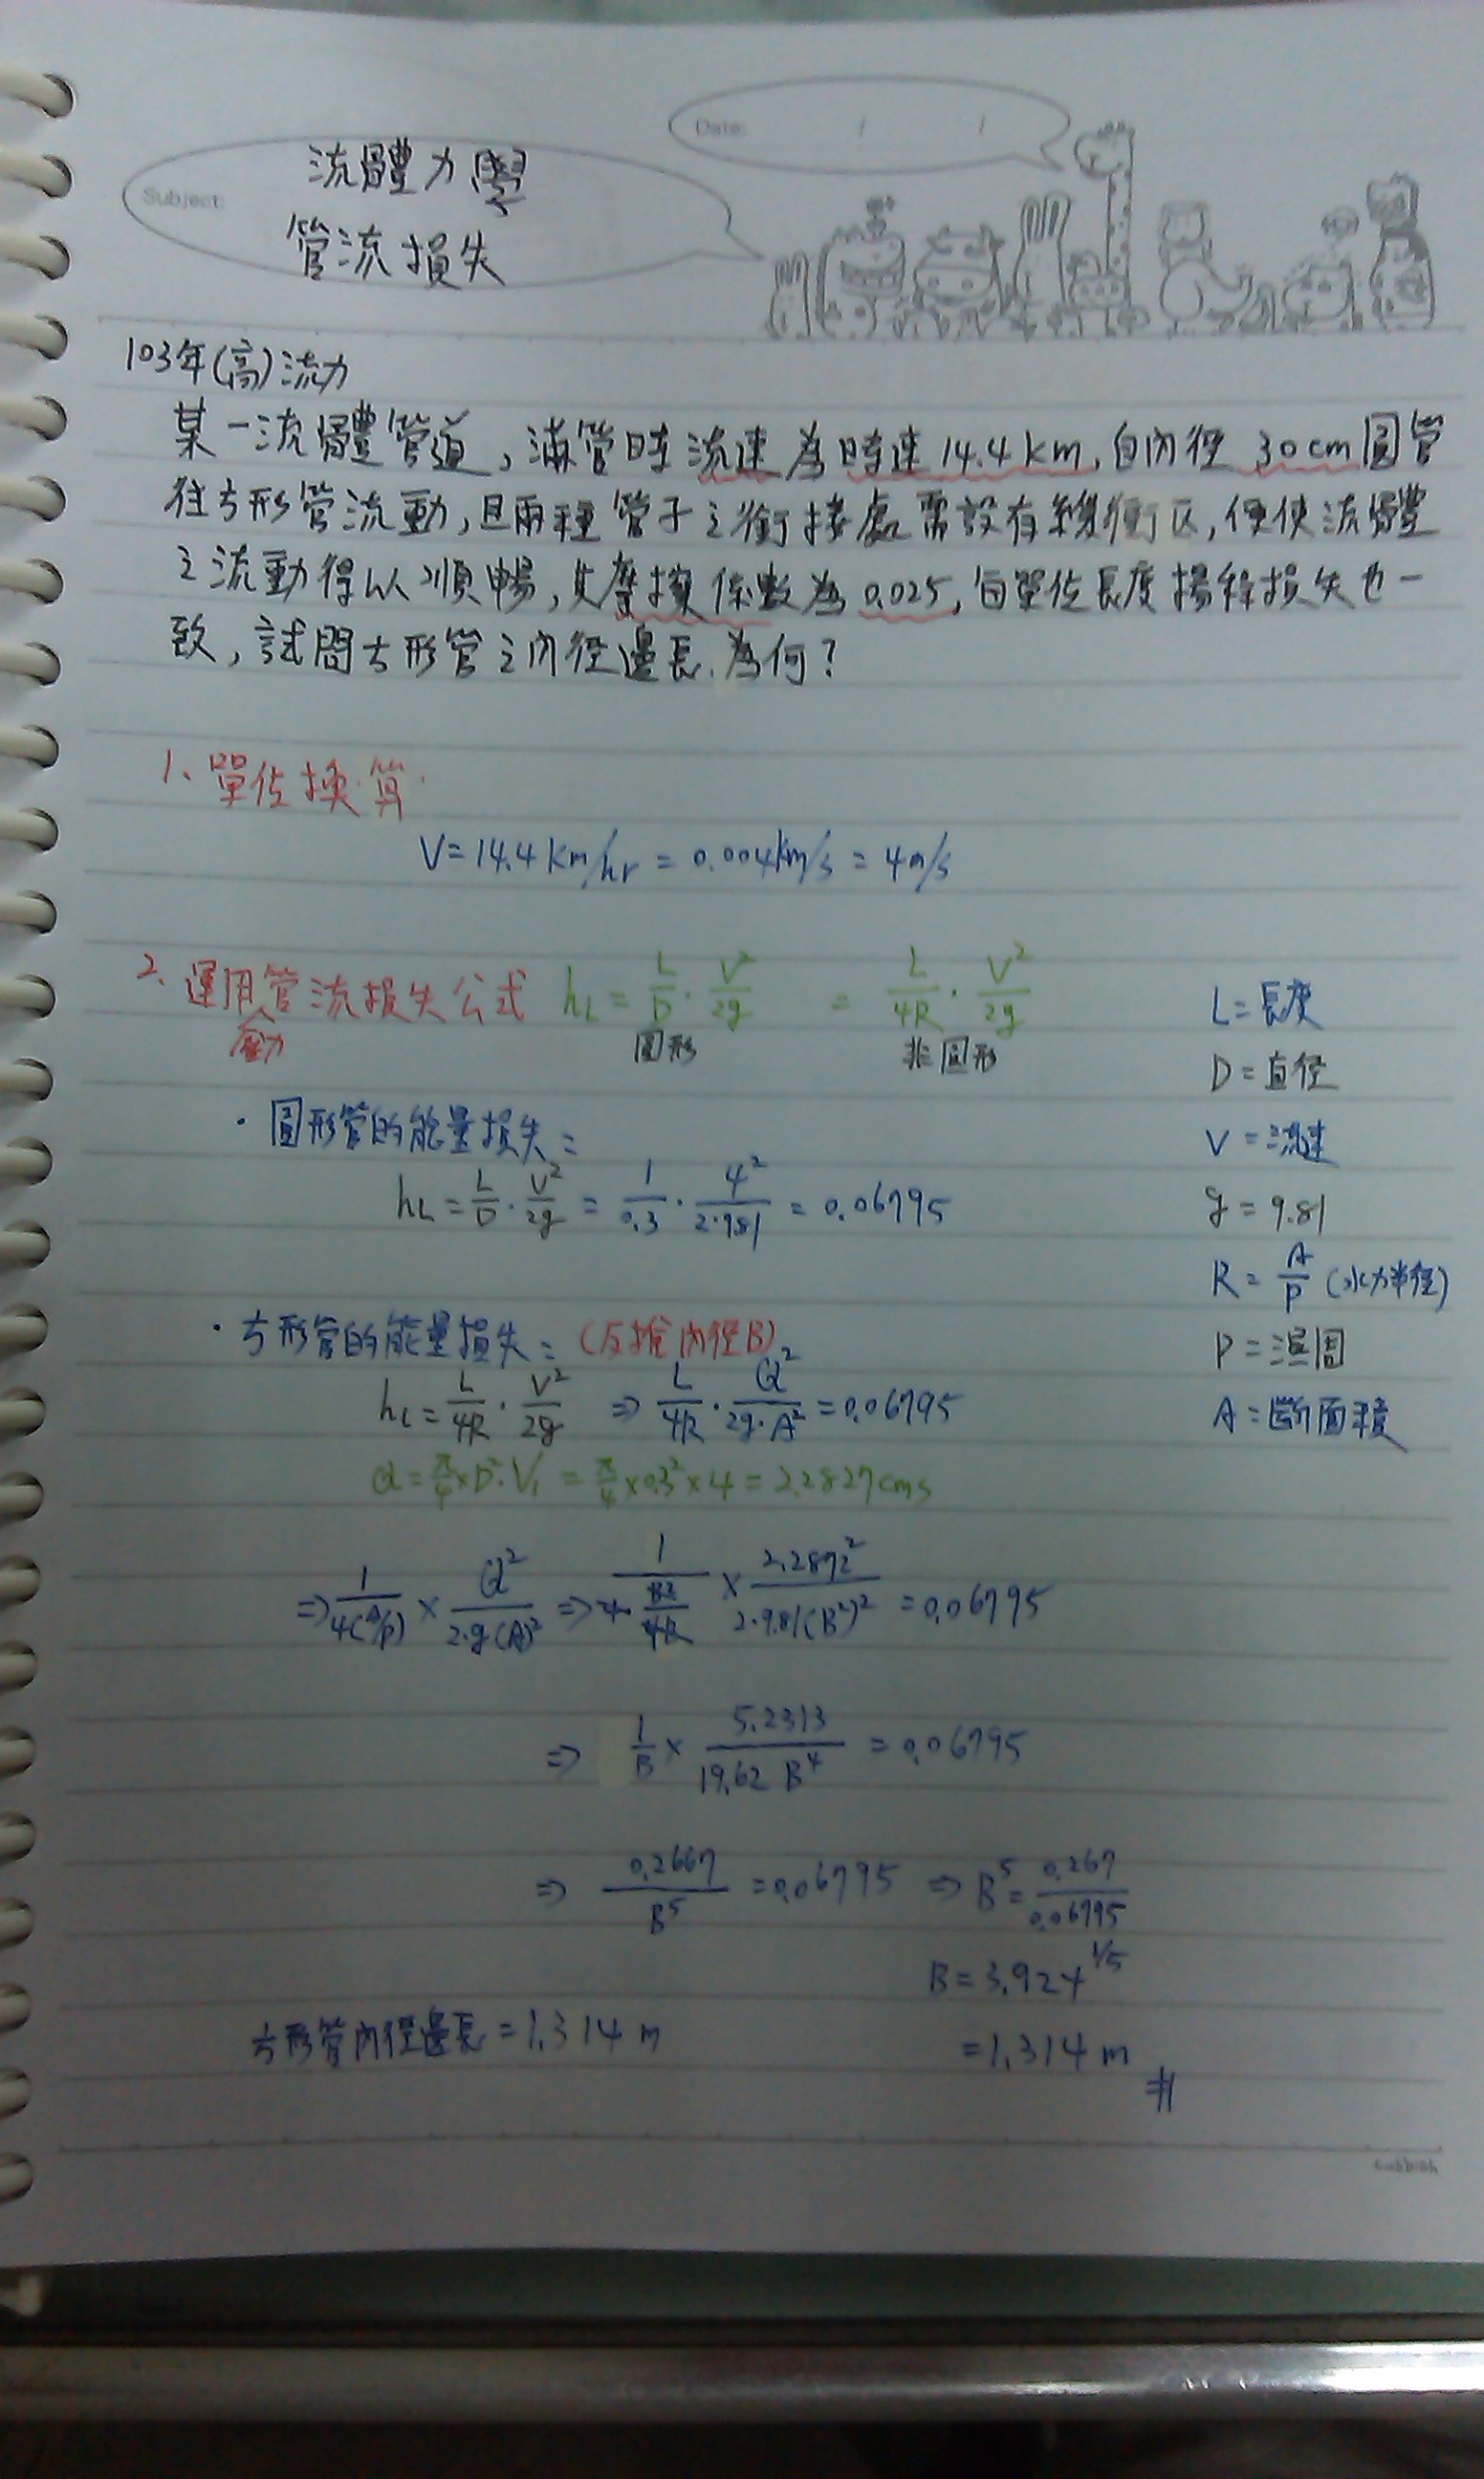 Subject:
流體力學
管流損失
Date: / /
103年(高)流力
某一流體管道,滿管時流速為時速14.4km,自內徑30cm圓管
往方形管流動,且兩種管子之銜接處需設有緩衝區,便使流體
之流動得以順暢,其摩擦係數為0.025,每單位長度揚程損失也一
致,試問方形管之內徑邊長為何?
1、單位換算
V=14.4km/hr = 0.004km/s = 4m/s
2、運用管流損失公式 hL = L/D · V²/2g = L/4R · V²/2g
壓力
圓形 非圓形
L=長度
D=直徑
V=流速
g=9.81
R=A/P (水力半徑)
P=濕周
A=斷面積
·圓形管的能量損失=
hL = L/D · V²/2g = 1/0.3 · 4²/2·981 = 0.06795
·方形管的能量損失=(反推內徑B)
hL = L/4R · V²/2g ⇒ L/4R · Q²/2g·A² = 0.06795
Q = π/4×D²·V₁ = π/4×0.3²×4 = 2.2827cms
⇒ 1/4(A/P) × Q²/2·g(A)² ⇒ 1/4·B²/4B × 2.2872²/2·9.81(B²)² = 0.06795
⇒ 1/B × 5.2313/19.62 B⁴ = 0.06795
⇒ 0.2667/B⁵ = 0.06795 ⇒ B⁵ = 0.267/0.06795
B=3.924^1/5
方形管內徑邊長=1.314 m
=1.314 m #